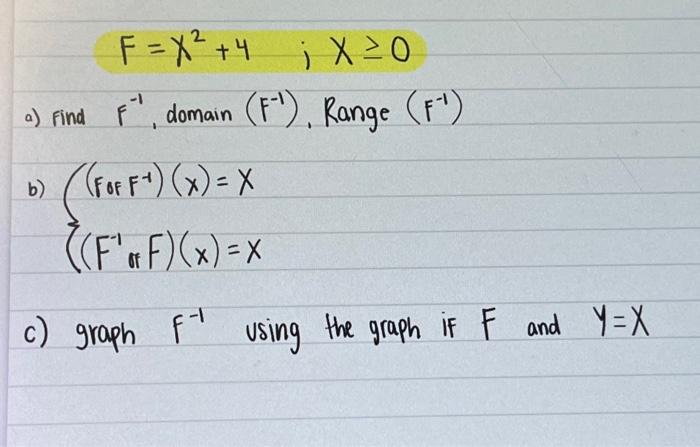 F = x² + 4 ; x ≥ 0
a) Find F⁻¹, domain (F⁻¹), Range (F⁻¹)
b) ((F of F⁻¹)(x) = x
((F⁻¹ of F)(x) = x
c) graph F⁻¹ using the graph if F and Y = X